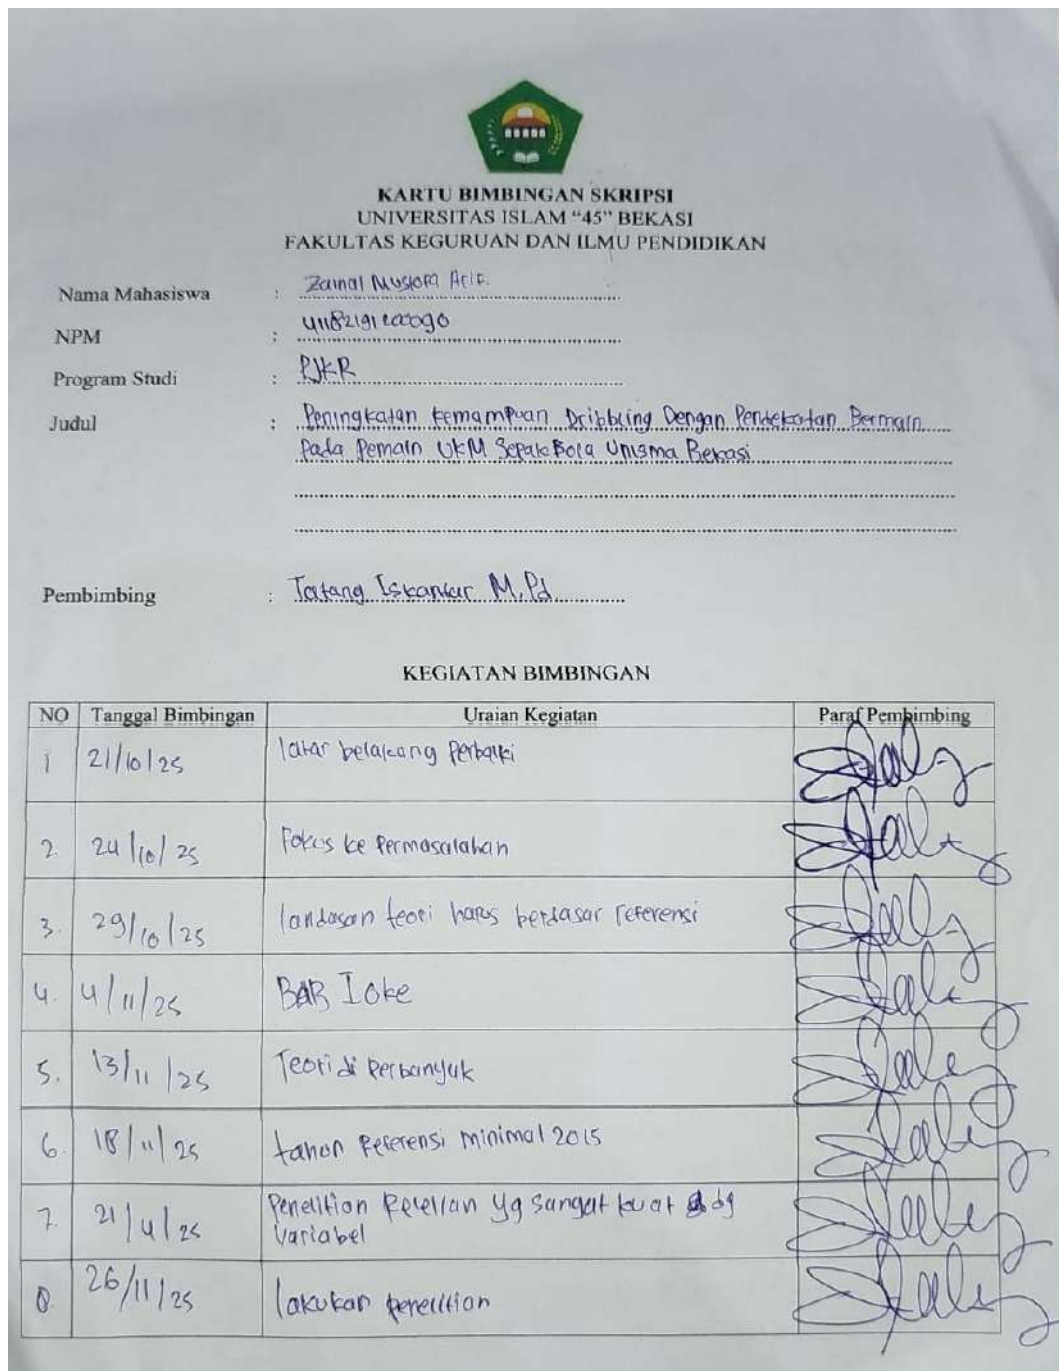 KARTU BIMBINGAN SKRIPSI
UNIVERSITAS ISLAM “45” BEKASI
FAKULTAS KEGURUAN DAN ILMU PENDIDIKAN
Nama Mahasiswa : Zainal Mustofa Arif.
NPM :
Program Studi : PJKR
Judul : Peningkatan kemampuan Dribbling Dengan Pendekatan Bermain
Pada Pemain UKM Sepak Bola Unisma Bekasi
Pembimbing : Tatang Iskandar M.Pd
KEGIATAN BIMBINGAN
NO Tanggal Bimbingan Uraian Kegiatan Paraf Pembimbing
1 21/10/25 latar belakang Perbaiki
2. 24/10/25 Fokus ke Permasalahan
3. 29/10/25 landasan teori harus berdasar referensi
4. 4/11/25 BAB I oke
5. 13/11/25 Teori di Perbanyak
6. 18/11/25 tahun Referensi minimal 2015
7. 21/4/25 Penelitian yg sangat kuat dg
Variabel
8. 26/11/25 lakukan penelitian